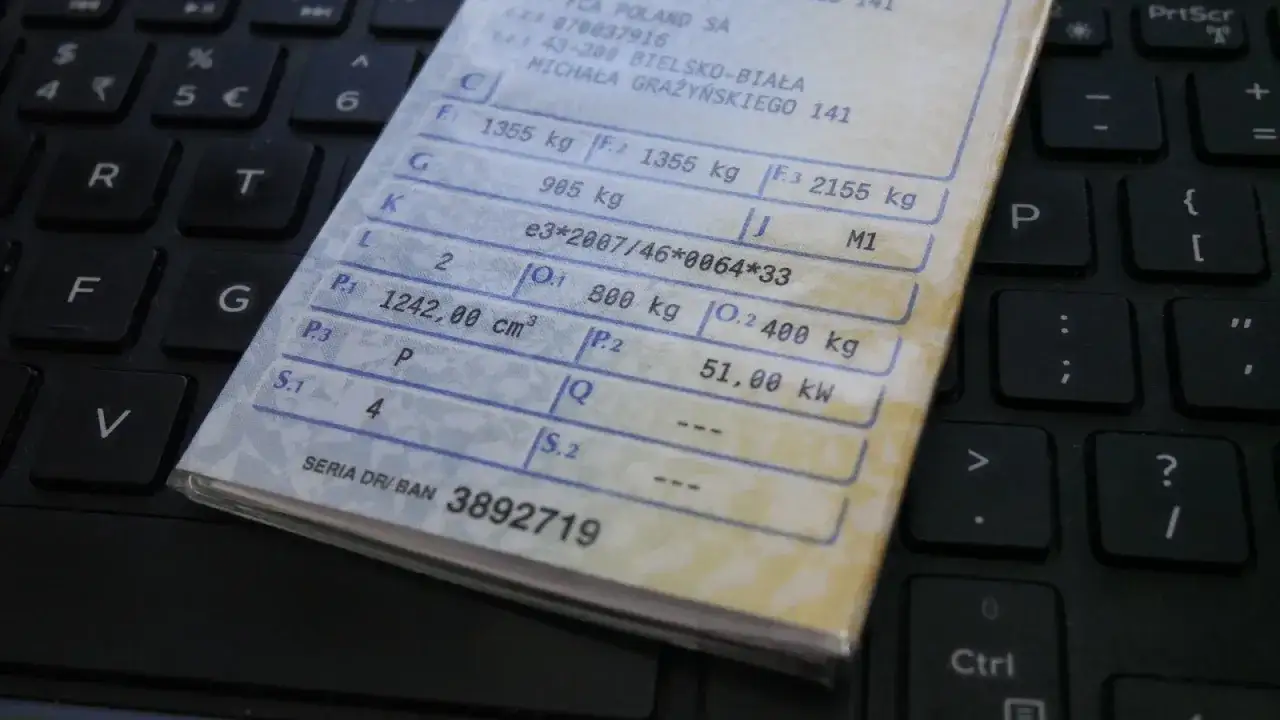 141
FCA POLAND SA
070037916
43-300 BIELSKO-BIAŁA
MICHAŁA GRAŻYŃSKIEGO 141
C
F.1 1355 kg F.2 1355 kg F.3 2155 kg
G 905 kg J M1
K e3*2007/46*0064*33
L 2 O.1 800 kg O.2 400 kg
P.1 1242,00 cm³ P.2 51,00 kW
P.3 P Q ---
S.1 4 S.2 ---
SERIA DR/BAN 3892719
$ % ^
4 ₹ 5 € 6
R T
F G
V
PrtScr
- +
- =
P { [
: ; " '
> . ? /
Ctrl